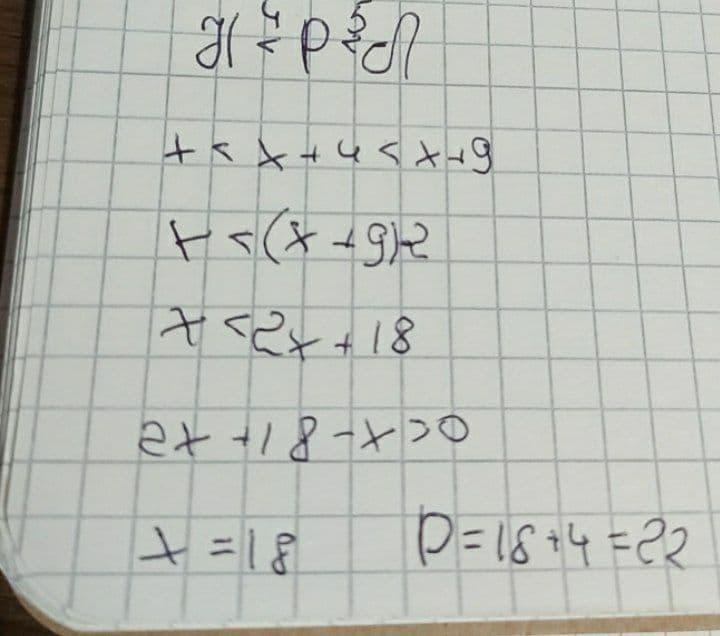 x < x + 4 < x + 9
x < (x + 9) 2
x < 2x + 18
2x + 18 - x > 0
x = 18 D = 18 + 4 = 22